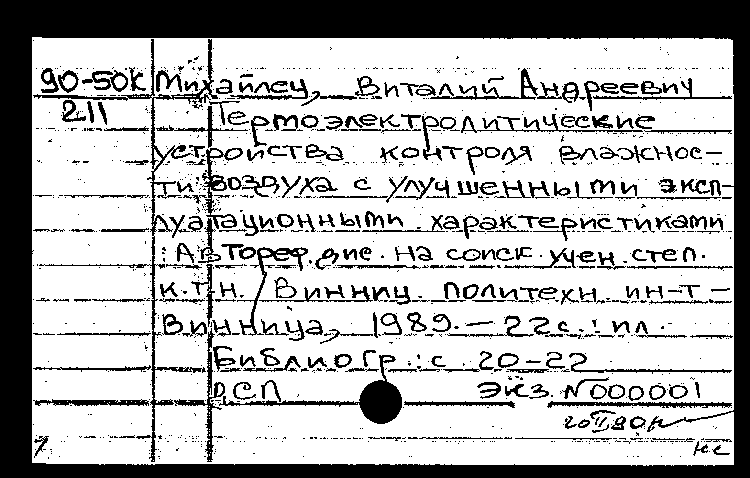 90-50К Михайлец, Виталий Андреевич
211 Термоэлектролитические
устройства контроля влажнос-
ти воздуха с улучшенными эксп-
луатационными характеристиками
: Автореф. дис. на соиск. учен. степ.
к.т.н. / Винниц. политехн. ин-т –
Винница, 1989. – 22 с. : ил.
Библиогр.: с. 20-22
ДСП Экз. N 000001
20 II 90